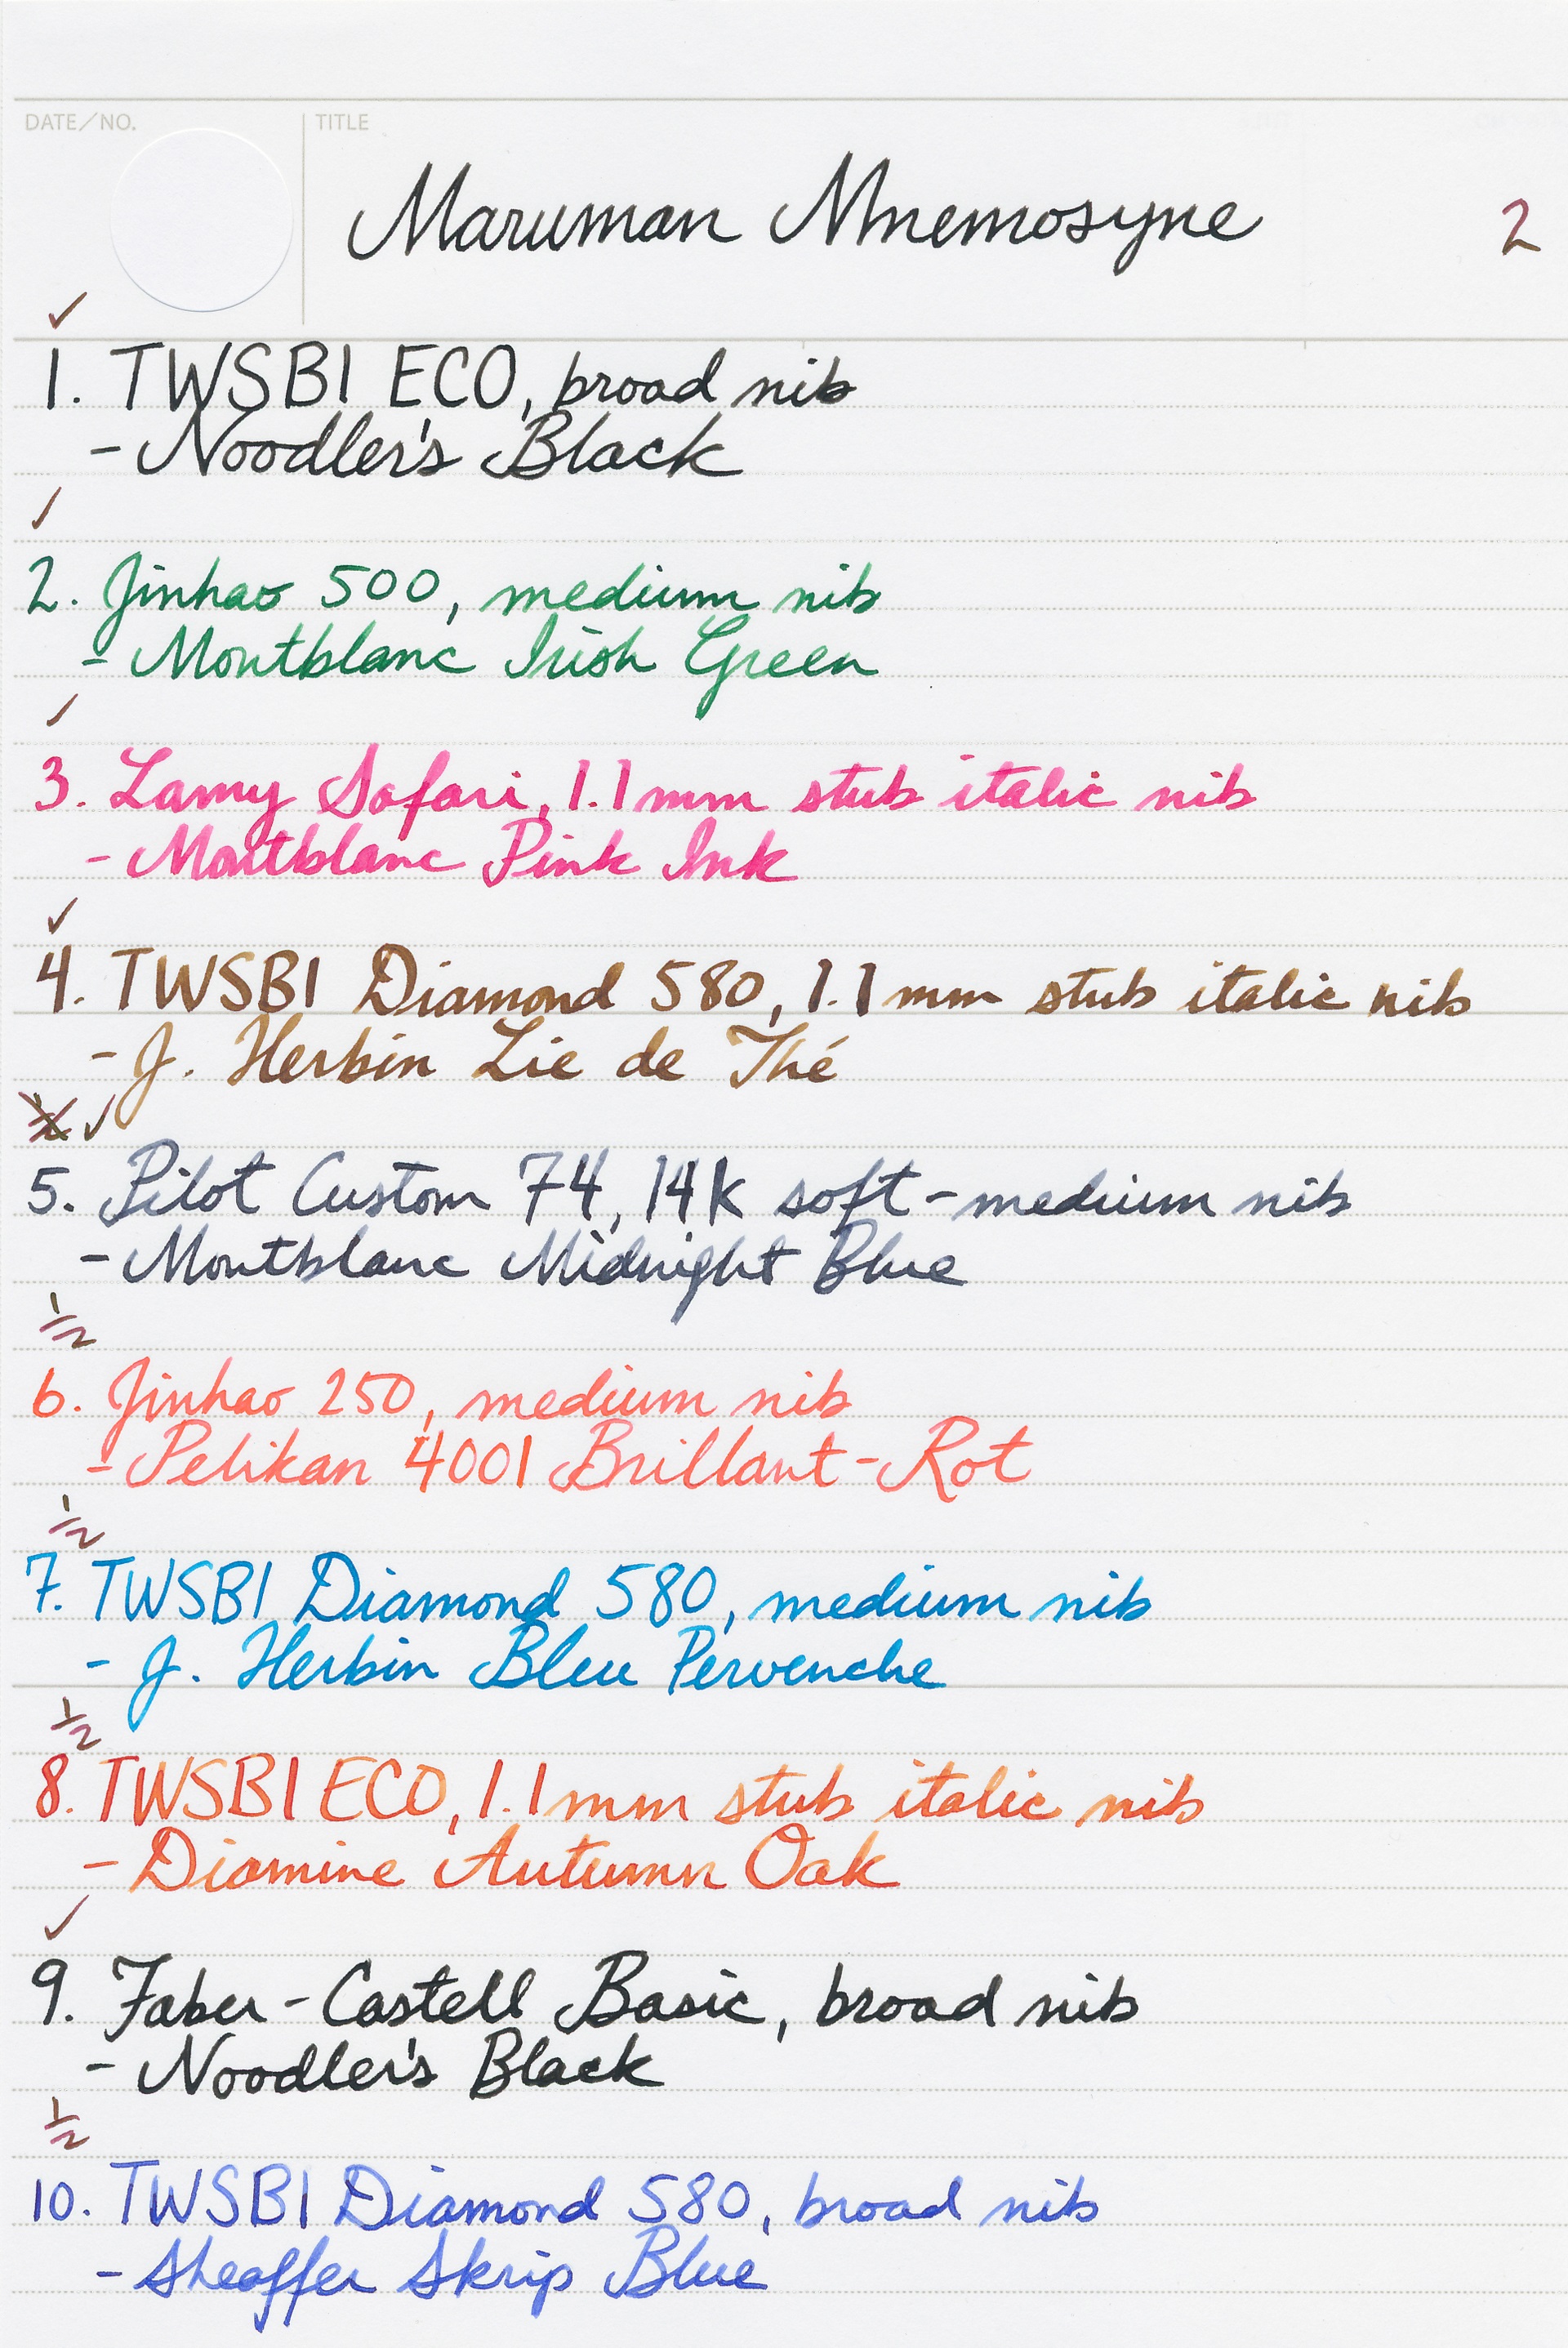 DATE/NO.
TITLE
Maruman Mnemosyne
2
✓
1. TWSBI ECO, broad nib
- Noodler's Black
✓
2. Jinhao 500, medium nib
- Montblanc Irish Green
✓
3. Lamy Safari, 1.1mm stub italic nib
- Montblanc Pink Ink
✓
4. TWSBI Diamond 580, 1.1mm stub italic nib
- J. Herbin Lie de Thé
✓
5. Pilot Custom 74, 14K soft-medium nib
- Montblanc Midnight Blue
1/2
6. Jinhao 250, medium nib
- Pelikan 4001 Brillant-Rot
1/2
7. TWSBI Diamond 580, medium nib
- J. Herbin Bleu Pervenche
1/2
8. TWSBI ECO, 1.1mm stub italic nib
- Diamine Autumn Oak
✓
9. Faber-Castell Basic, broad nib
- Noodler's Black
1/2
10. TWSBI Diamond 580, broad nib
- Sheaffer Skrip Blue